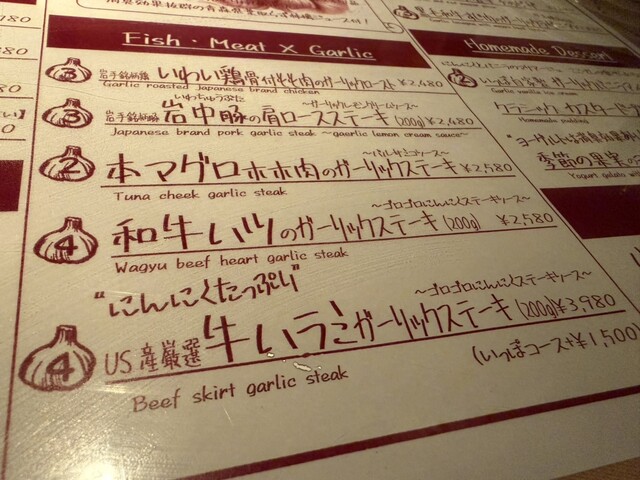 Fish・Meat X Garlic
3 岩手銘柄鶏 いわい鶏骨付きモモ肉のガーリックロースト ¥2,480
Garlic roasted Japanese brand chicken
いわちゅうぶた
〜ガーリックレモンクリームソース〜
3 岩手銘柄豚 岩中豚の肩ロースステーキ (200g) ¥2,480
Japanese brand pork garlic steak ~gaerlic lemon cream sauce~
〜バルサミコソース〜
2 本マグロホホ肉のガーリックステーキ ¥2,580
Tuna cheek garlic steak
〜ゴロゴロにんにくステーキソース〜
4 和牛ハツのガーリックステーキ (200g) ¥2,580
Wagyu beef heart garlic steak
"にんにくたっぷり"
〜ゴロゴロにんにくステーキソース〜
4 US産厳選 牛ハラミガーリックステーキ (200g) ¥3,980
Beef skirt garlic steak
(いっぽコース+¥1,500
Homemade Dessert
2
Garlic vanilla ice cream
Homemade pudding
季節の果実
Yogurt gelato wi